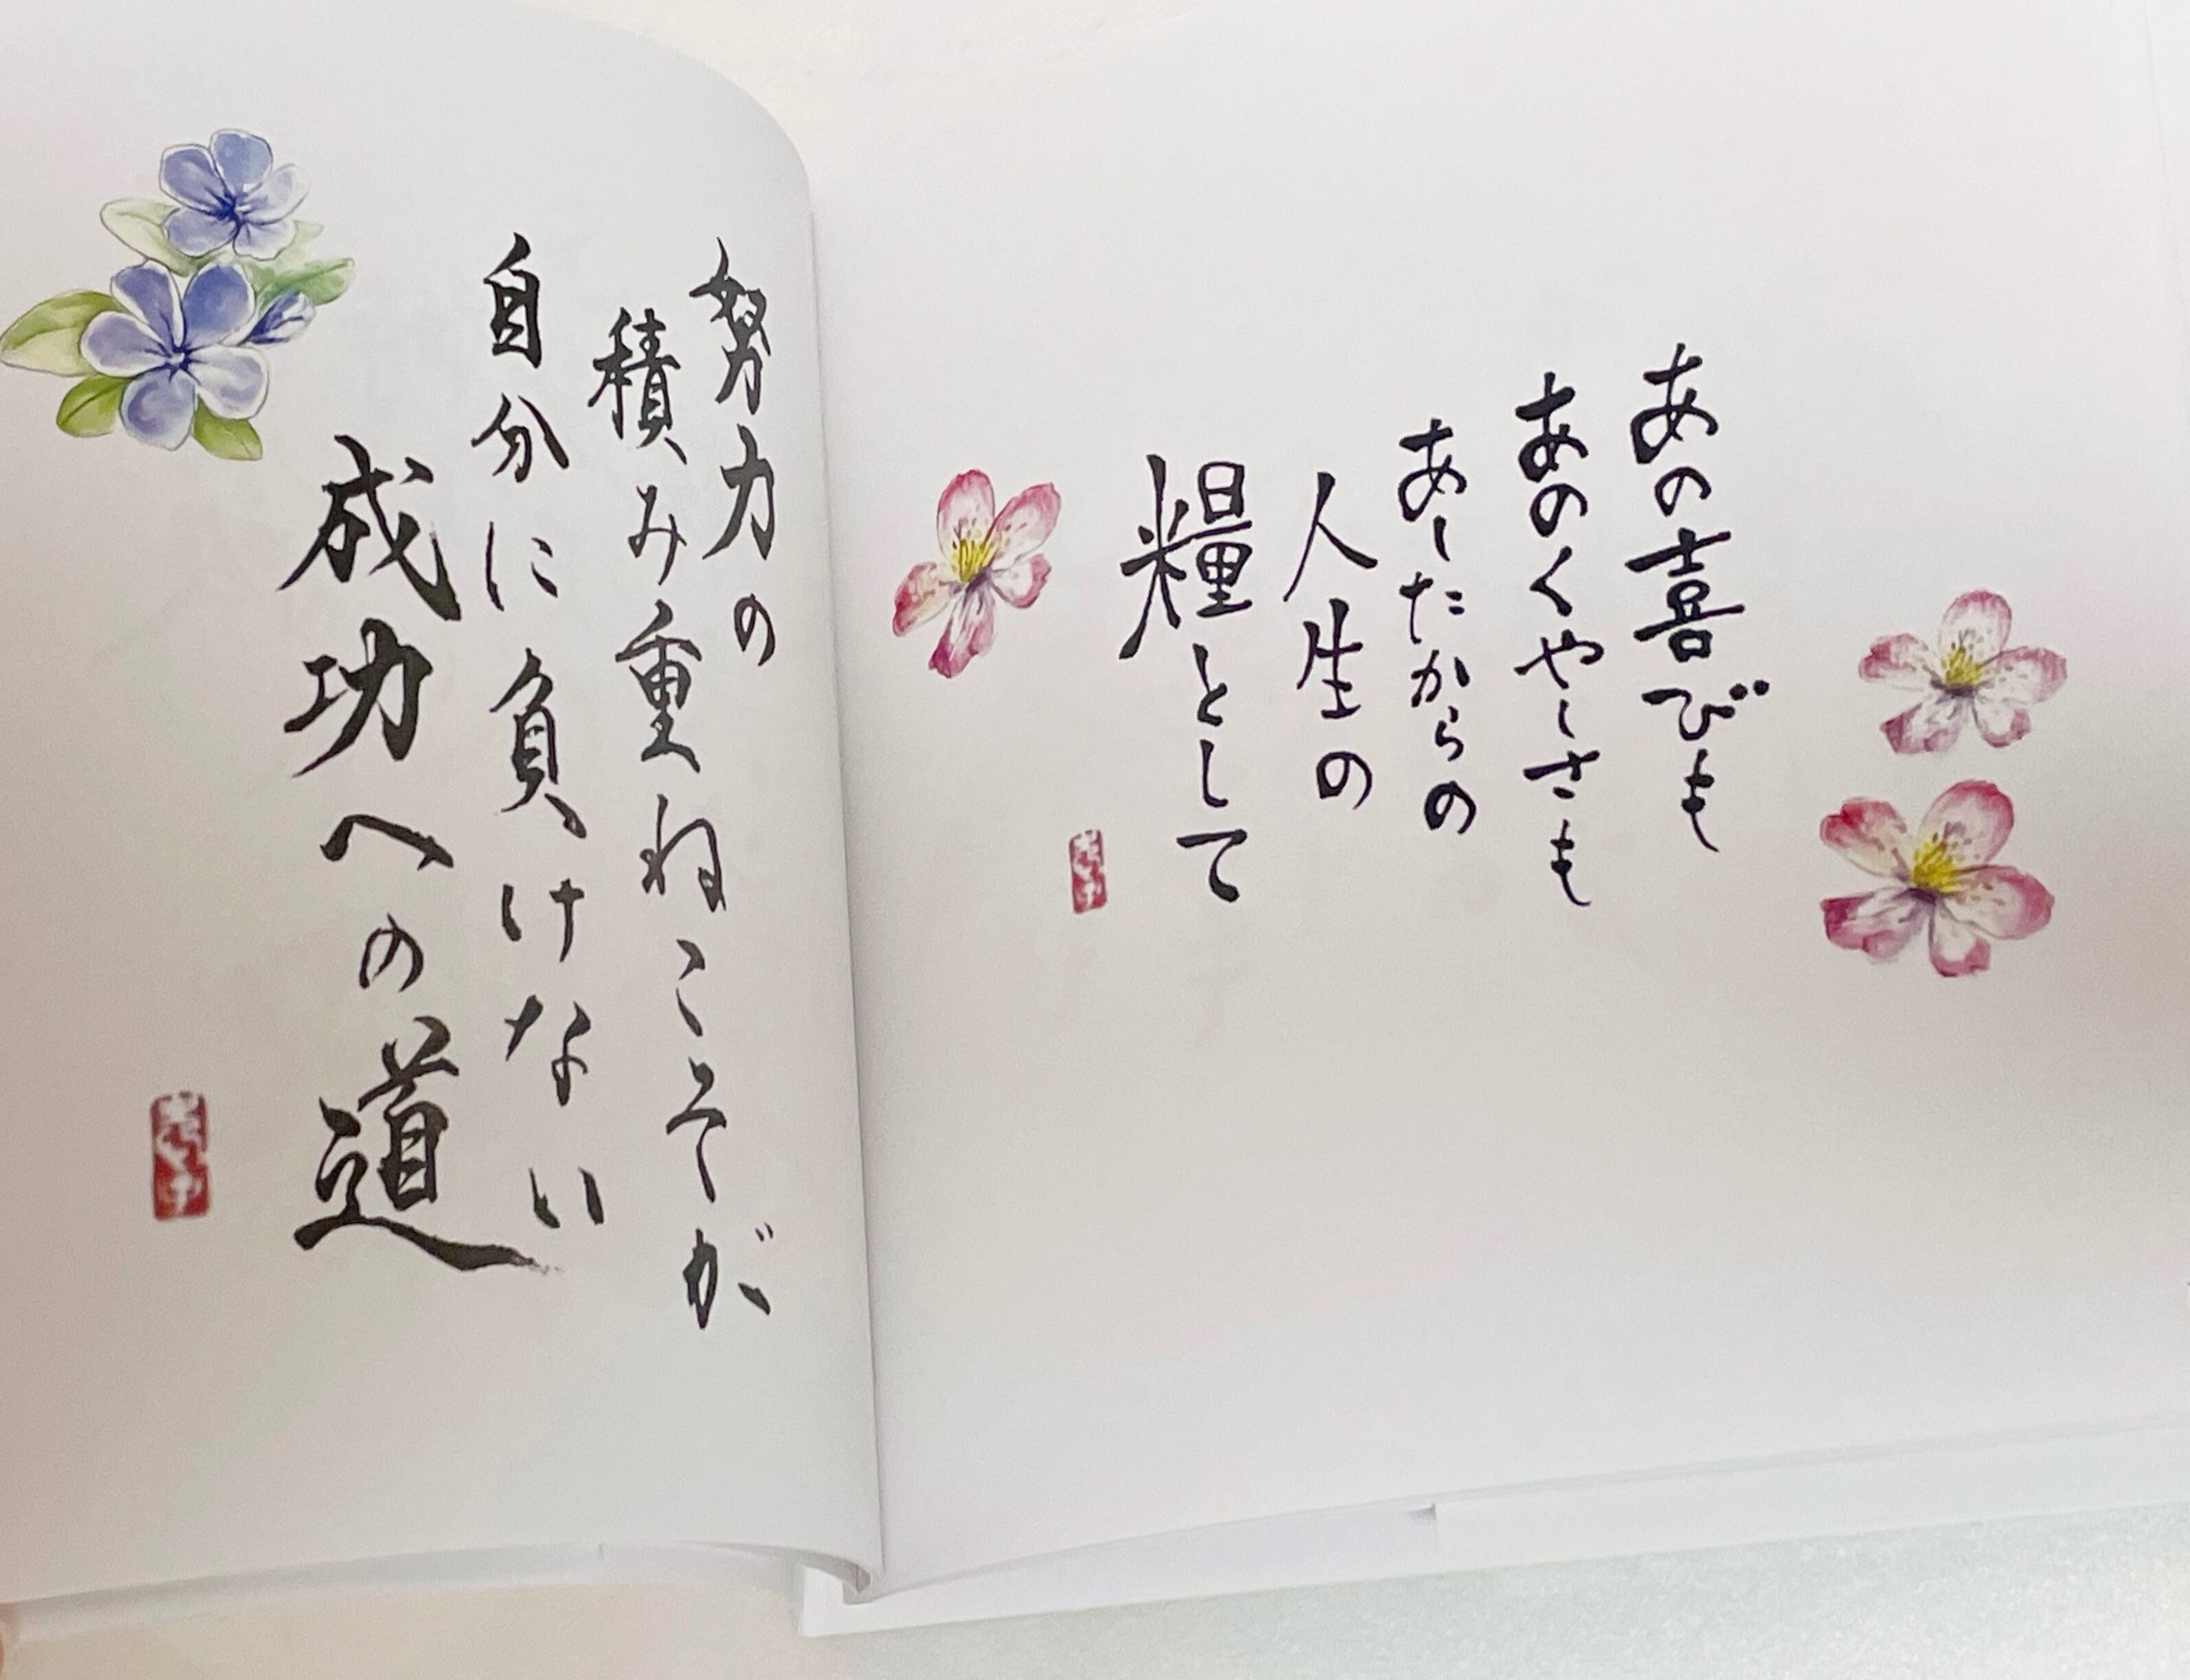 あの喜びも
あのくやしさも
あしたからの
人生の
糧として
努力の
積み重ねこそが
自分に負けない
成功への道